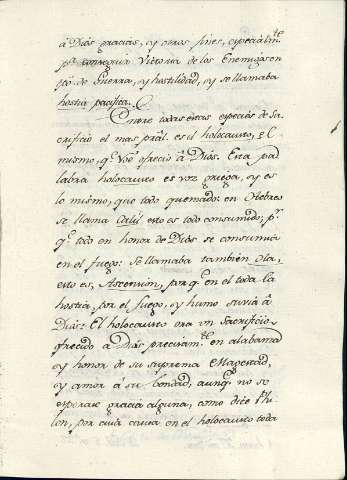 à Dios gracias, y otros fines, especialm.te
p.a conseguir Vitoria de los Enemigos en
de Guerra, y hostilidad, y se llamaba
hostia pacifica.
Entre todas estas especies de Sa-
crificio el mas pral. es el holocausto, el
mismo, q.e ofrecio â Dios. Esta pa-
labra holocausto es voz griega, y es
lo mismo, que todo quemado: en Hebreo
se llama Calil esto es todo consumido; p.r
q.e todo en honor de Dios se consumia
en el fuego: Se llamaba tambien Ola,
esto es, Ascension, por q.e en él toda la
hostia, por el fuego, y humo suvia â
Dios: El holocausto era un Sacrificio,
ofrecido a Dios precisam.te en alabanza
y honor de su suprema Magestad,
y amor á su bondad, aunq.e no se
esperase gracia alguna, como dice Phi-
lon, por cuia causa en el holocausto toda